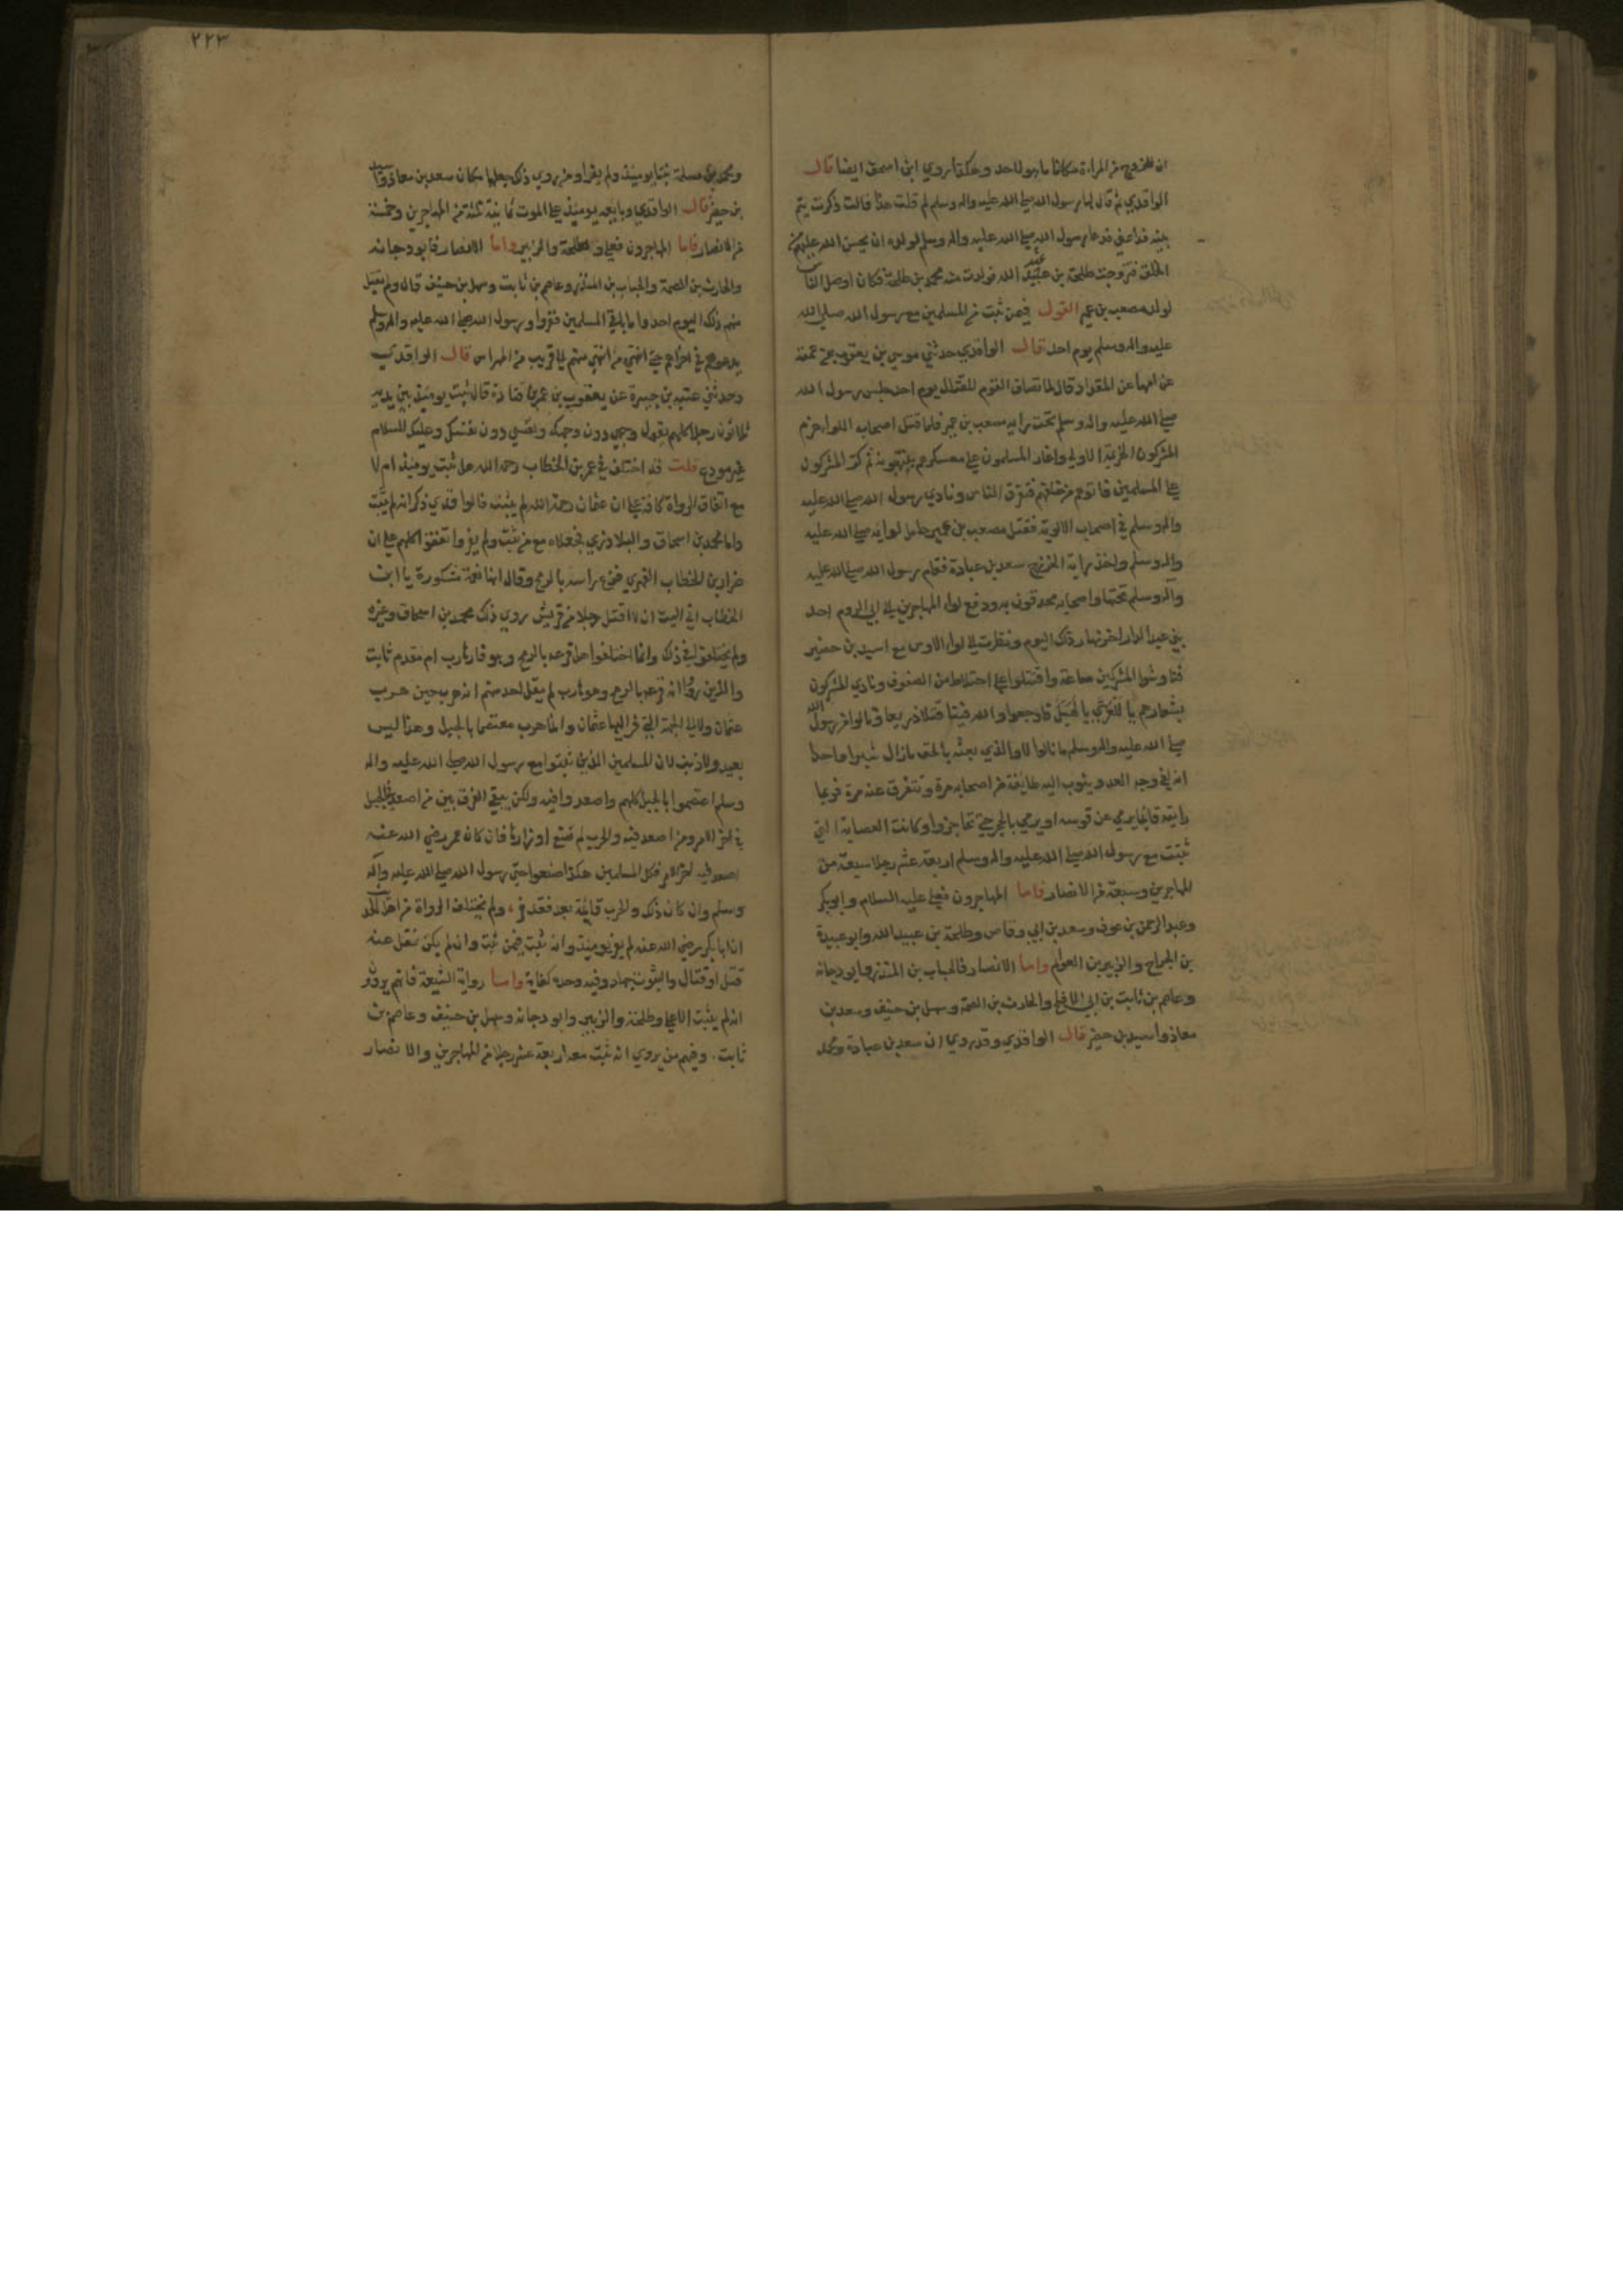 ان للزوج من المراة مكانا ما هو لاحد وهكذا روي ابن اسحق ايضا قال
الواقدي ثم قال لها رسول الله صلي الله عليه واله وسلم لم قلت هذا قالت ذكرت يتم
بنيه فراعني فدعا رسول الله صلي الله عليه واله وسلم لولده ان يحسن الله عليهم
الخلق فتزوجت طلحة بن عبيد الله فولدت منه محمد بن طلحة فكان اوصل الناس
لولد مصعب بن عمير القول فيمن ثبت من المسلمين مع رسول الله صلي الله
عليه واله وسلم يوم احد قال الواقدي حدثني موسي بن يعقوب عن عمته
عن امها عن المقداد قال لما تصاف القوم للقتال يوم احد جلس رسول الله
صلي الله عليه واله وسلم تحت راية مصعب بن عمير فلما قتل اصحاب اللوا هزم
المشركون الهزيمة الاولي واغار المسلمون علي معسكرهم ينهبونه ثم كر المشركون
علي المسلمين فاتوهم من خلفهم فتفرق الناس ونادي رسول الله صلي الله عليه
واله وسلم في اصحاب الالوية فقتل مصعب بن عمير حامل لوائه صلي الله عليه
واله وسلم واخذ راية الخزرج سعد بن عبادة فقام رسول الله صلي الله عليه
واله وسلم تحتها واصحابه محدقون به ودفع لواء المهاجرين الي ابي الروم احد
بني عبد الدار اخر نهار ذلك اليوم ونظرت الي لواء الاوس مع اسيد بن حضير
فناوشوا المشركين ساعة واقتتلوا علي اختلاط من الصفوف ونادي المشركون
بشعارهم يا للعزي يا لهبل فاوجعوا والله فينا قتلا ذريعا ونالوا من رسول الله
صلي الله عليه واله وسلم ما نالوا لا والذي بعثه بالحق ما زال شبرا واحدا
انه لفي وجه العدو ويثوب اليه طايفة من اصحابه مرة وتتفرق عنه مرة فربما
رايته قايما يرمي عن قوسه او يرمي بالحجر حتي تحاجزوا وكانت العصابة التي
ثبتت مع رسول الله صلي الله عليه واله وسلم اربعة عشر رجلا سبعة من
المهاجرين وسبعة من الانصار فاما المهاجرون فعلي عليه السلام وابو بكر
وعبد الرحمن بن عوف وسعد بن ابي وقاص وطلحة بن عبيد الله وابو عبيدة
بن الجراح والزبير بن العوام واما الانصار فالحباب بن المنذر وابو دجانة
وعاصم بن ثابت بن ابي الاقلح والحارث بن الصمة وسهل بن حنيف وسعد بن
معاذ واسيد بن حضير قال الواقدي وقد روي ان سعد بن عبادة ومحمد
٢٢٣
ومحمد بن مسلمة ثبتا يومئذ ولم يفرا ومن روي ذلك جعلهما مكان سعد بن معاذ واسيد
بن حضير قال الواقدي وبايعه يومئذ علي الموت ثمانية ثلثة من المهاجرين وخمسة
من الانصار فاما المهاجرون فعلي وطلحة والزبير واما الانصار فابو دجانه
والحارث بن الصمة والحباب بن المنذر وعاصم بن ثابت وسهل بن حنيف قال ولم يقتل
منهم ذلك اليوم احد واما باقي المسلمين ففروا ورسول الله صلي الله عليه واله وسلم
يدعوهم في اخراهم حتي انتهي من انتهي منهم الي قريب من المهراس قال الواقدي
وحدثني عتبة بن جبيرة عن يعقوب بن عمر بن قتادة قال ثبت يومئذ بين يديه
ثلاثون رجلا كلهم يقول وجهي دون وجهك ونفسي دون نفسك وعليك السلام
غير مودع قلت قد اختلف في عمر بن الخطاب رحمه الله هل ثبت يومئذ ام لا
مع اتفاق الرواة كافة علي ان عثمان رحمه الله لم يثبت فالواقدي ذكر انه لم يثبت
واما محمد بن اسحاق والبلاذري فجعلاه مع من ثبت ولم يفر واتفقوا كلهم علي ان
ضرار بن الخطاب الفهري قرع راسه بالرمح وقال انها نعمة مشكورة يا ابن
الخطاب اني اليت ان لا اقتل رجلا من قريش روي ذلك محمد بن اسحاق وغيره
ولم يختلفوا في ذلك وانما اختلفوا هل قرعه بالرمح وهو فار هارب ام مقدم ثابت
والذين رووا انه قرعه بالرمح وهو هارب لم يقل احد منهم انه هرب حين هرب
عثمان ولا الي الجهة التي فر اليها عثمان وانما هرب معتصما بالجبل وهذا ليس
بعيد ولا ذنب لان المسلمين الذين ثبتوا مع رسول الله صلي الله عليه واله
وسلم اعتصموا بالجبل كلهم واصعدوا فيه ولكن يبقي الفرق بين من اصعد في الجبل
في اخر الامر ومن اصعد فيه والحرب لم تضع اوزارها فان كان عمر رضي الله عنه
اصعد فيه اخر الامر فكل المسلمين هكذا صنعوا حتي رسول الله صلي الله عليه واله
وسلم وان كان ذلك والحرب قائمة بعد فقد فر، ولم يختلف الرواة من اهل الحديث
ان ابا بكر رضي الله عنه لم يفر يومئذ وانه ثبت فيمن ثبت وان لم يكن نقل عنه
قتل او قتال والثبوت جهاد وفيه وحده كفاية واما رواية الشيعة فانهم يروون
انه لم يثبت الا علي وطلحة والزبير وابو دجانه وسهل بن حنيف وعاصم بن
ثابت. وفيهم من يروي انه ثبت معه اربعة عشر رجلا من المهاجرين والانصار